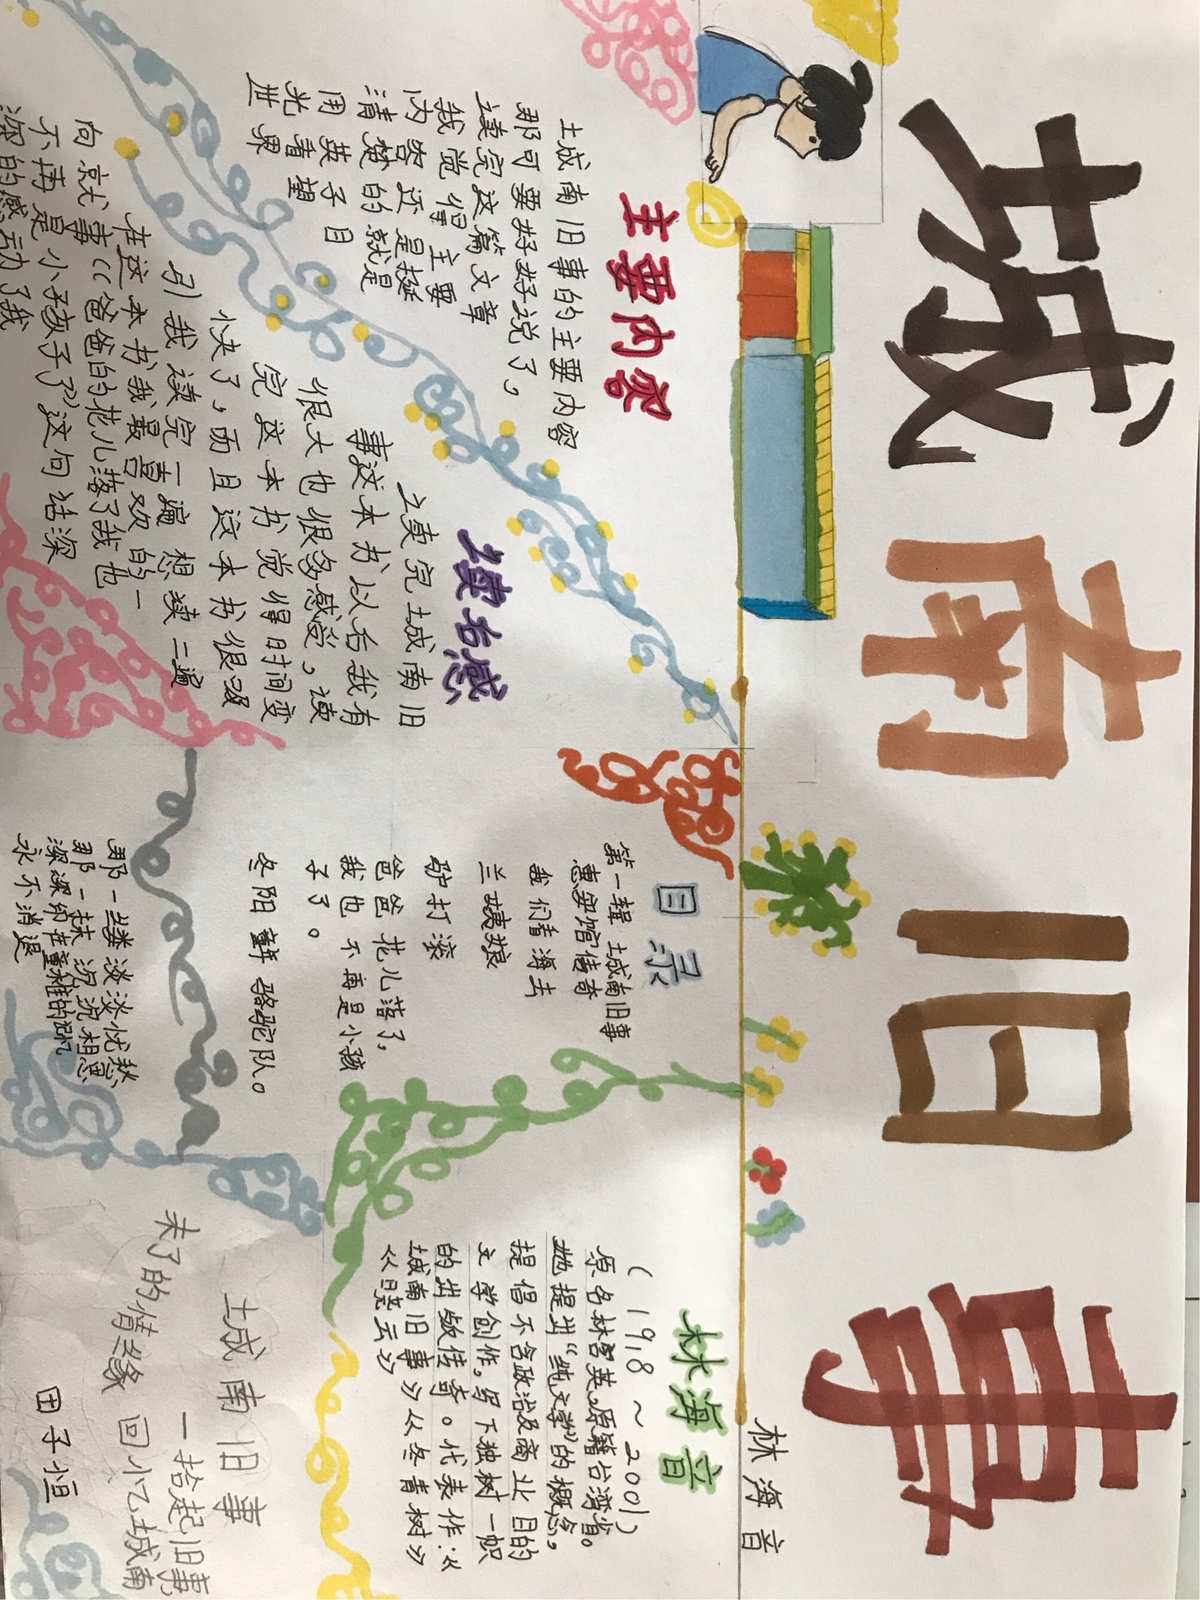 城南旧事
林海音
主要内容
城南旧事的主要内容
那可要好好说了。
读完这篇文章
我觉得主要
内容还是挺
清楚的就是
用英子目
光看望
世界
读后感
读完城南旧
事这本书以后我有
很大也很多感受。读
完这本书觉得时间变
快了,而且这本书很吸
引我读完一遍想读二遍
在这本书我最喜欢的一
就事《爸爸的花儿落了我也
不再是小孩子了》这句话深
深的感动了我
目录
第一辑 城南旧事
惠安馆传奇
我们看海去
兰姨娘
驴打滚
爸爸花儿落了,
我也不再是小孩
子了。
冬阳 骆驼队。
那一缕淡淡忧愁
那一抹沉沉相思
深深印在童稚的记忆
永不消退
林海音
(1918~2001)
原名林含英,原籍台湾省。
她提出“纯文学”的概念,
提倡不含政治及商业目的
文学创作,写下独树一帜
的出版传奇。代表作:《
城南旧事》《冬青树》
《晓云》
城南旧事
一拾起旧事,
未了的情缘 回忆城南
田子恒